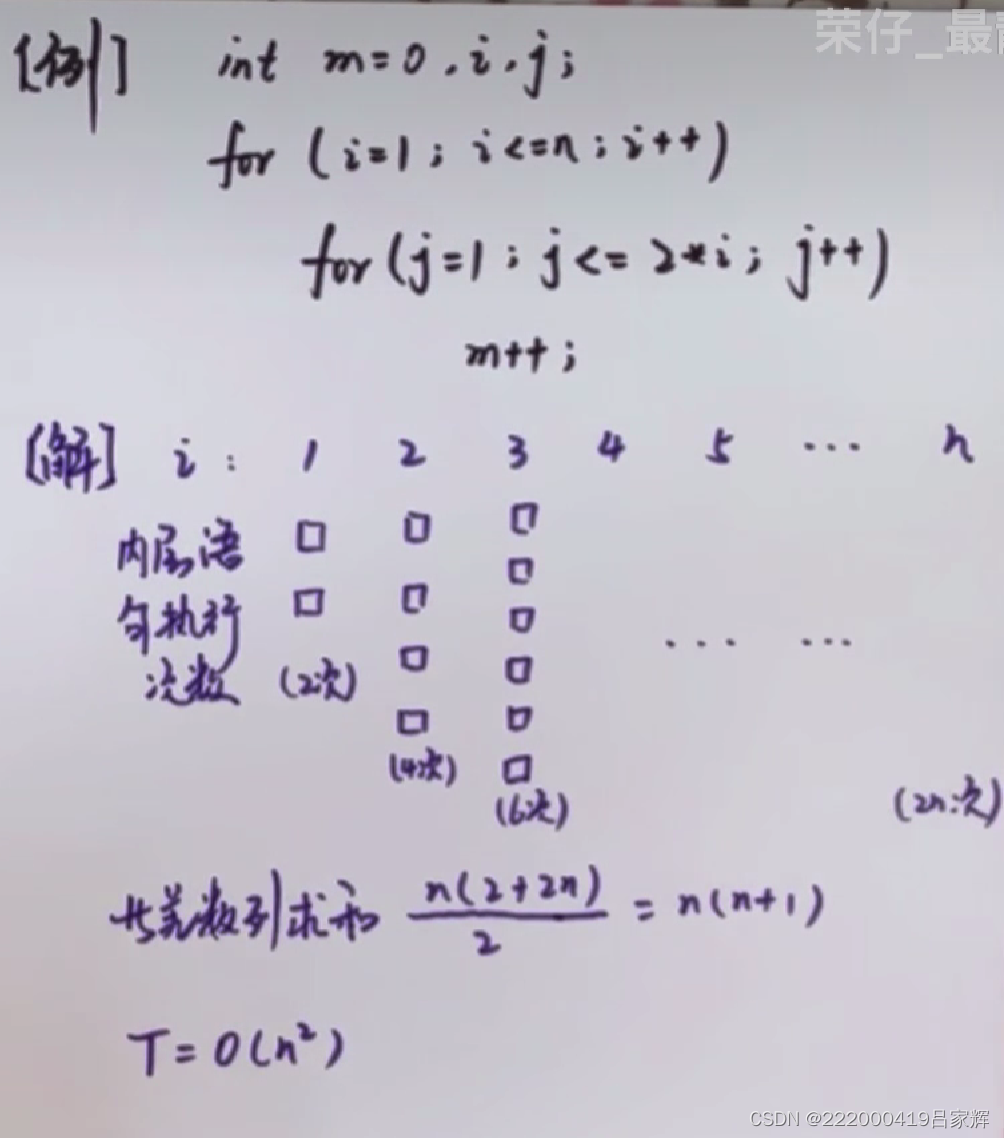 荣仔_最
[例] int m=0,i,j;
for (i=1; i<=n; i++)
for(j=1; j<= 2*i; j++)
m++;
[解] i: 1 2 3 4 5 ... n
内层语
句执行
次数 (2次)
(4次)
(6次)
(2n次)
... ...
等差数列求和 n(2+2n)/2 = n(n+1)
T=O(n²)
CSDN @222000419吕家辉